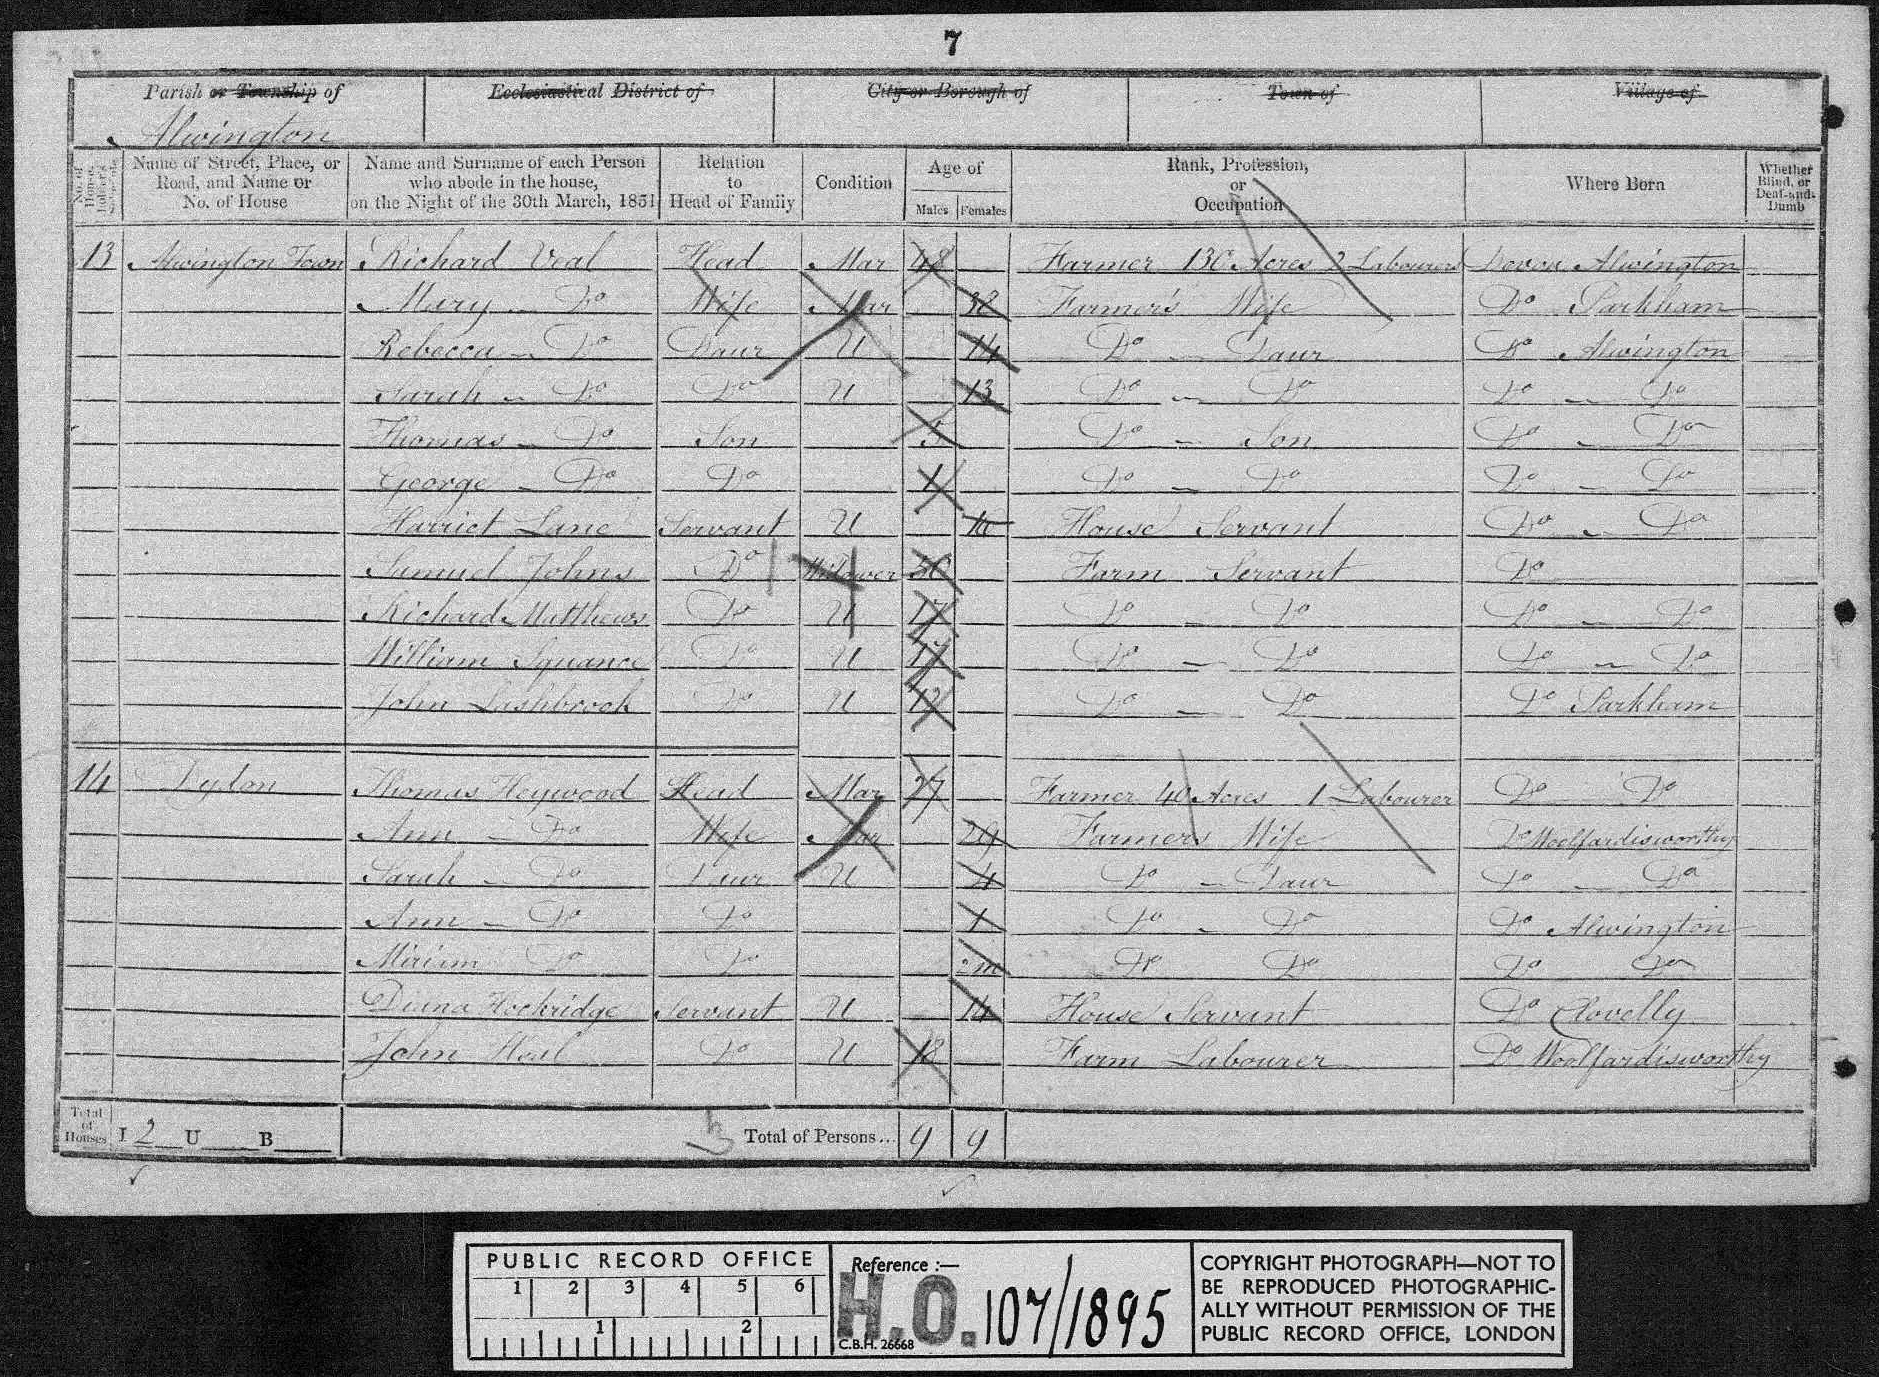 7
Parish or Township of Ecclesiastical District of City or Borough of Town of Village of
Alwington
No. of House-holder's Schedule Name of Street, Place, or Road, and Name or No. of House Name and Surname of each Person who abode in the house, on the Night of the 30th March, 1851 Relation to Head of Family Condition Age of Males Females Rank, Profession, or Occupation Where Born Whether Blind, or Deaf-and-Dumb
13 Alwington Town Richard Veal Head Mar 48 Farmer 130 Acres 2 Labourers Devon Alwington
Mary Do Wife Mar 38 Farmer's Wife Do Parkham
Rebecca Do Daur U 14 Do Daur Do Alwington
Sarah Do Do U 13 Do Do Do Do
Thomas Do Son 5 Do Son Do Do
George Do Do 1 Do Do Do Do
Harriet Lane Servant U House Servant Do Do
Samuel Johns Do Widower Farm Servant Do
Richard Matthews Do U 17 Do Do Do Do
William Squance Do U 17 Do Do Do Do
John Lashbrook Do U Do Do Do Parkham
14 Dyton Thomas Heywood Head Mar 27 Farmer 40 Acres 1 Labourer Do Do
Ann Do Wife Mar 29 Farmers Wife Do Woolfardisworthy
Sarah Do Daur U 4 Do Daur Do Do
Ann Do Do 1 Do Do Do Alwington
Miriam Do Do 2m Do Do Do Do
Diana Hockridge Servant U 14 House Servant Do Clovelly
John Do U 18 Farm Labourer Do Woolfardisworthy
Total of Houses I 2 U B Total of Persons... 9 9
PUBLIC RECORD OFFICE
1 2 3 4 5 6
1 2
Reference :—
H.O. 107/1895
C.B.H. 26668
COPYRIGHT PHOTOGRAPH—NOT TO
BE REPRODUCED PHOTOGRAPHIC-
ALLY WITHOUT PERMISSION OF THE
PUBLIC RECORD OFFICE, LONDON